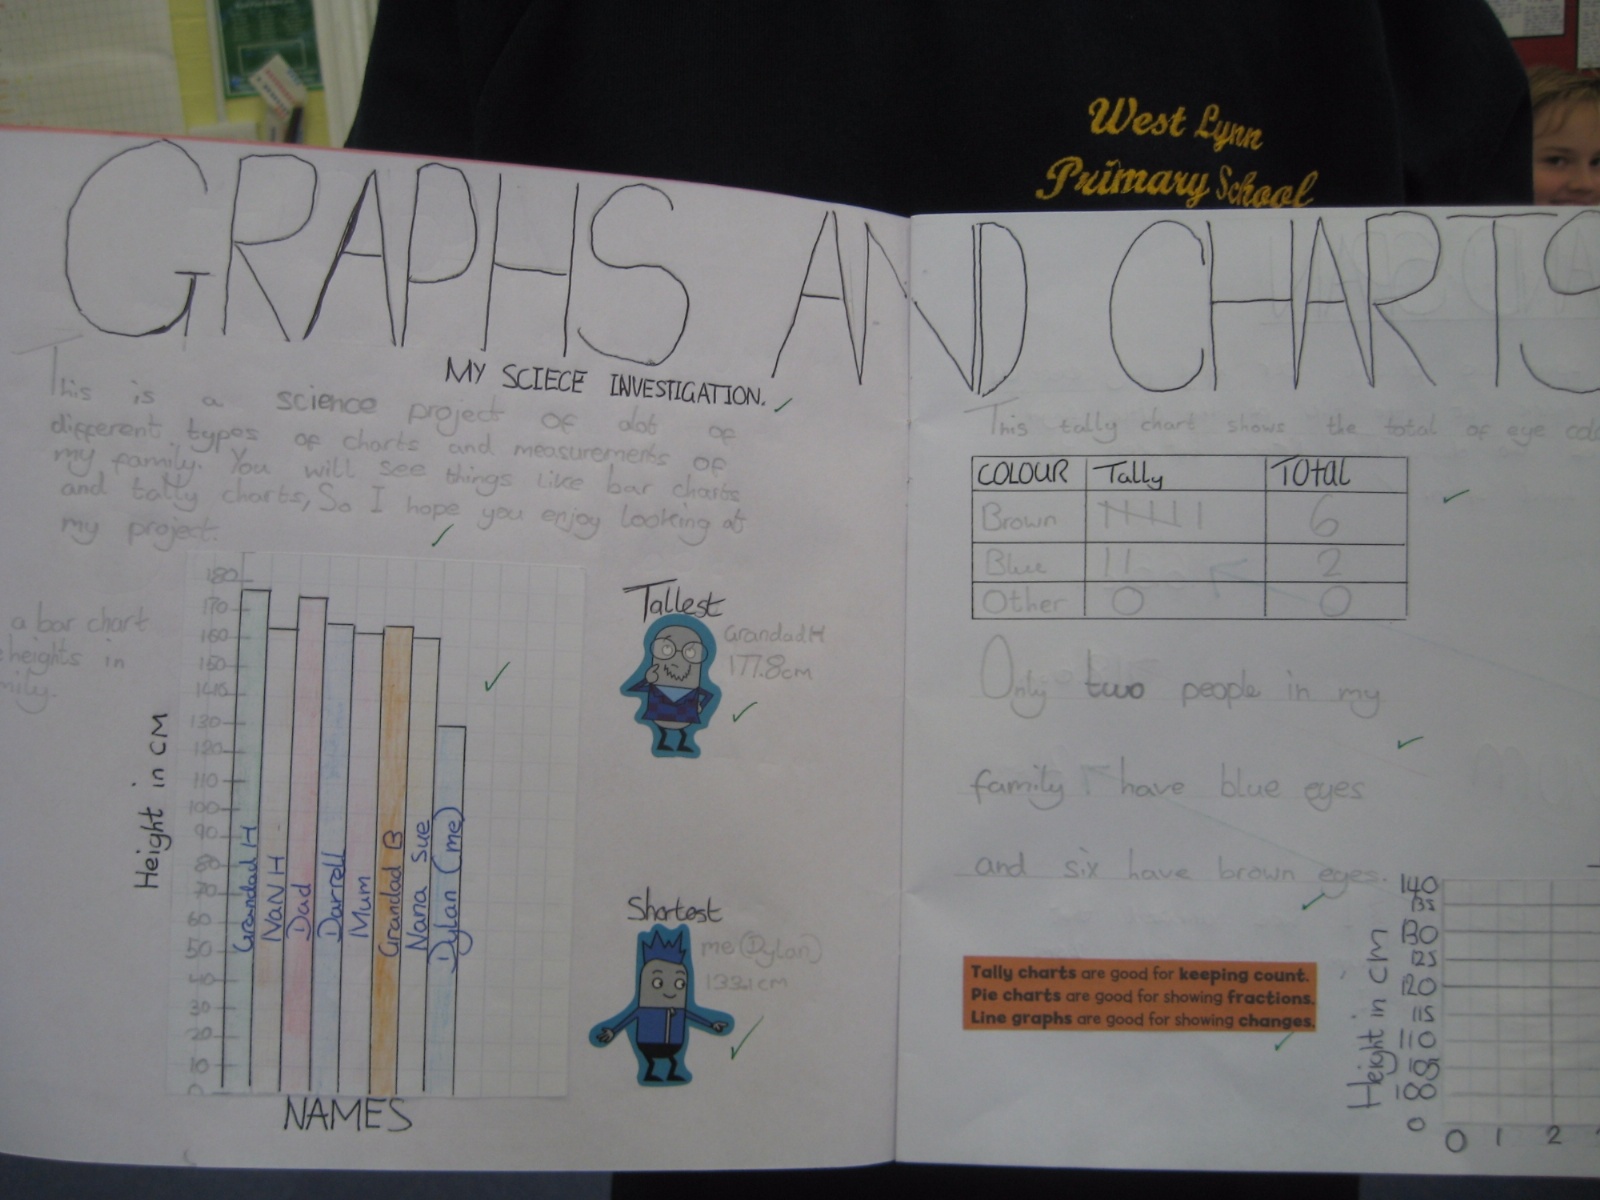 West Lynn
Primary School
GRAPHS AND CHARTS
MY SCIECE INVESTIGATION.
This is a science project of alot of
different types of charts and measurements of
my family. You will see things like bar charts
and tally charts, So I hope you enjoy looking at
my project.
a bar chart
heights in
mily.
Height in CM
180
170
160
150
140
130
120
110
100
90
80
70
60
50
40
30
20
10
0
Grandad H
NaN H
Dad
Darrell
Mum
Grandad B
Nana sue
Dylan (me)
NAMES
Tallest
Grandad H
177.8cm
Shortest
me (Dylan)
133.1cm
This tally chart shows the total of eye colo
COLOUR Tally TOtal
Brown 6
Blue 2
Other 0 0
Only two people in my
family have blue eyes
and six have brown eyes.
Tally charts are good for keeping count.
Pie charts are good for showing fractions.
Line graphs are good for showing changes.
Height in cm
140
135
130
125
120
115
110
105
100
0
0 1 2